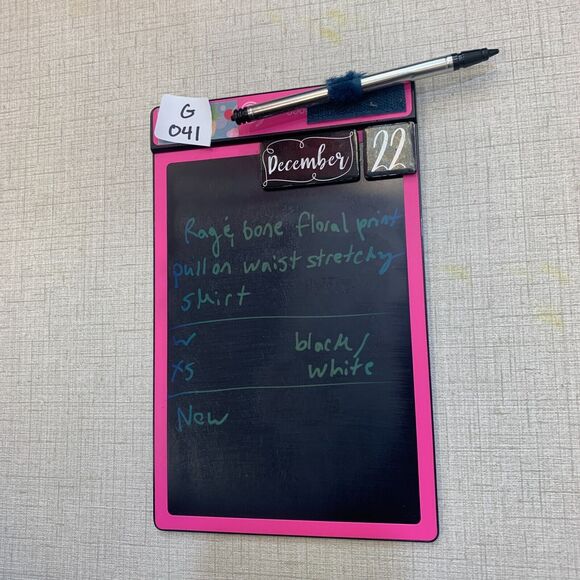 G
041
December
22
Rag & bone floral print
pull on waist stretchy
skirt
W
black/
XS
white
New